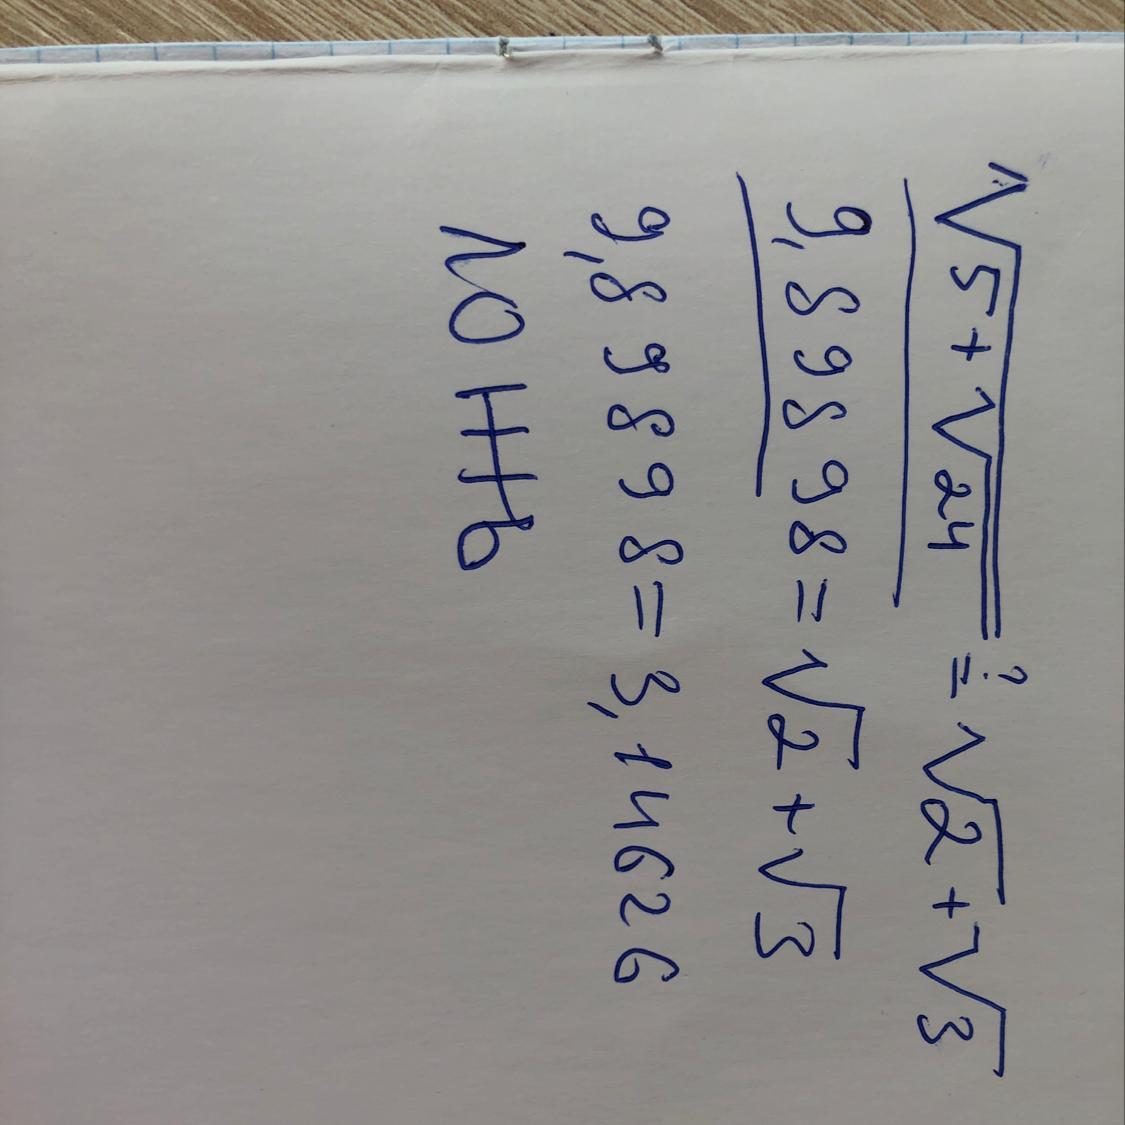 √5+√24 ≟ √2+√3
9,89898=√2+√3
9,89898=3,14626
ложь